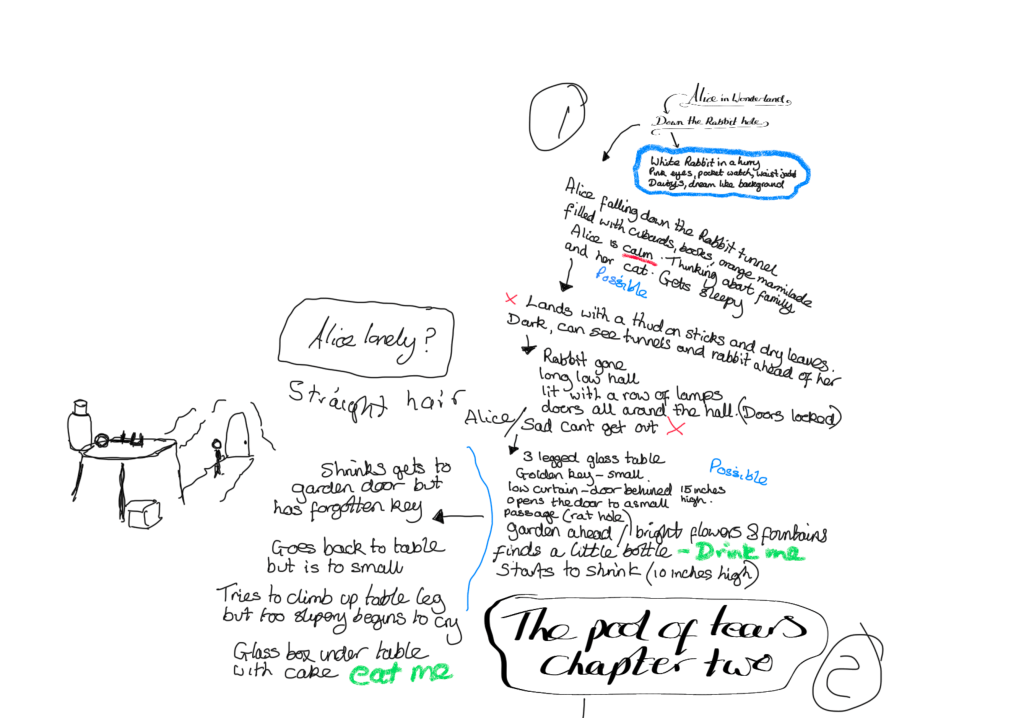 1
Alice in Wonderland
Down the Rabbit hole
White Rabbit in a hurry
Pink eyes, pocket watch, waist
Daisys, dream like background
Alice falling down the Rabbit tunnel
filled with cubards, books, orange mamilade
Alice is calm. Thinking about family
and her cat. Gets sleepy
Possible
x Lands with a thud on sticks and dry leaves.
Dark, can see tunnels and rabbit ahead of her
Rabbit gone
long low hall
lit with a row of lamps
doors all around the hall. (Doors locked)
Alice / Sad cant get out x
Alice lonely?
Straight hair
3 legged glass table
Golden key - small
Possible
low curtain - door behined 15 inches high.
opens the door to a small
passage (rat hole)
garden ahead / bright flowers & fountains
finds a little bottle - Drink me
starts to shrink (10 inches high)
Shrinks gets to
garden door but
has forgotten key
Goes back to table
but is to small
Tries to climb up table leg
but too slipery begins to cry
Glass box under table
with cake eat me
The pool of tears
chapter two
2